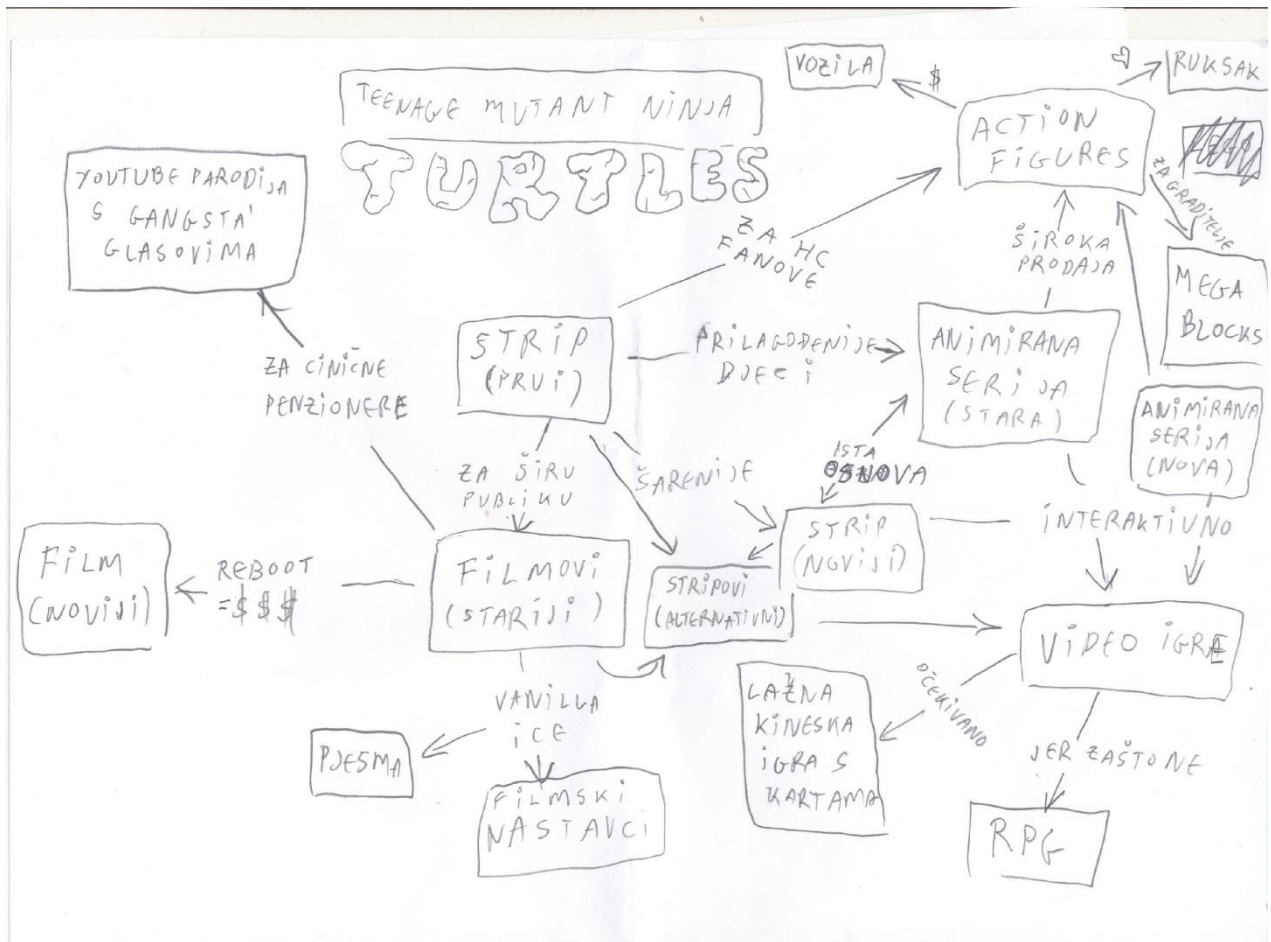 TEENAGE MUTANT NINJA
TURTLES
VOZILA
$
RUKSAK
ACTION
FIGURES
ZA GRADITELJE
MEGA
BLOCKS
YOUTUBE PARODIJA
S GANGSTA'
GLASOVIMA
ZA HC
FANOVE
ŠIROKA
PRODAJA
STRIP
(PRVI)
PRILAGOĐENIJE
DJECI
ANIMIRANA
SERIJA
(STARA)
ANIMIRANA
SERIJA
(NOVA)
ZA CINIČNE
PENZIONERE
ZA ŠIRU
PUBLIKU
ŠARENIJE
ISTA
OSNOVA
STRIP
(NOVIJI)
INTERAKTIVNO
FILM
(NOVIJI)
REBOOT
=$$$
FILMOVI
(STARIJI)
STRIPOVI
(ALTERNATIVNI)
VIDEO IGRE
VANILLA
ICE
PJESMA
FILMSKI
NASTAVCI
LAŽNA
KINESKA
IGRA S
KARTAMA
OČEKIVANO
JER ZAŠTO NE
RPG